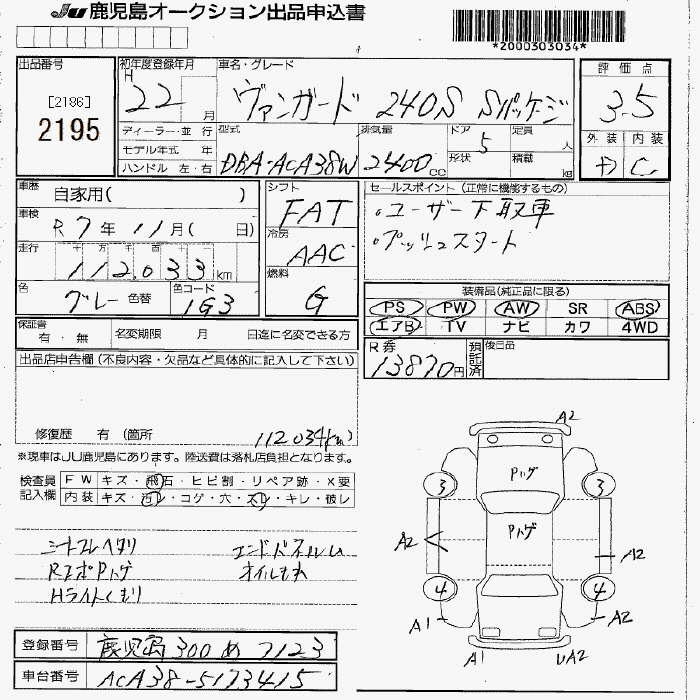 JU 鹿児島オークション出品申込書
*2000303034*
出品番号
[2186]
2195
初年度登録年月
H 22 月
車名・グレード
ヴァンガード 240S Sパッケージ
評価点
3.5
外装 内装
C
ディーラー・並行
モデル年式 年
ハンドル 左・右
型式
DBA-ACA38W
排気量
2400cc
ドア 5
形状
定員 人
積載 kg
車歴
自家用( )
車検
R7年11月( 日)
走行
十 万 千 百 十 一
112,033km
色
グレー 色替
色コード
1G3
シフト
FAT
冷房
AAC
燃料
G
セールスポイント(正常に機能するもの)
・ユーザー下取車
・プッシュスタート
装備品(純正品に限る)
PS PW AW SR ABS
エアB TV ナビ カワ 4WD
保証書
有・無
名変期限 月 日迄に名変できる方
R券
13870円
預託済
後日品
出品店申告欄(不良内容・欠品など具体的に記入して下さい)
修復歴 有(箇所 112034km)
※現車はJU鹿児島にあります。陸送費は落札店負担となります。
検査員記入欄
FW キズ・飛石・ヒビ割・リペア跡・X要
内装 キズ・・コゲ・穴・スレ・キレ・破レ
シートスレヘタリ
RエポPハゲ
Hライトくもり
オイルもれ
A2
Pハゲ
3 3
Pハゲ
A2
A2
4 4
A1 A2
A1 UA2
登録番号
鹿児島 300 め 7123
車台番号
ACA38-5173415